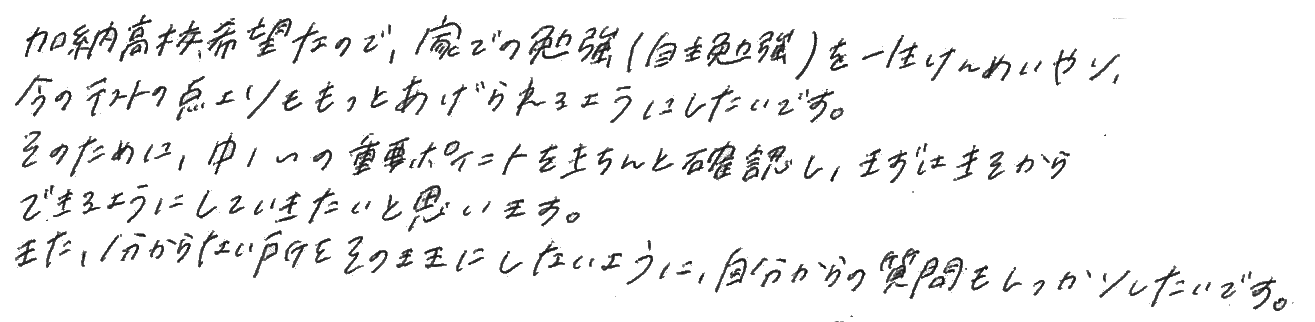 加納高校希望なので、家での勉強(自主勉強)を一生けんめいやり、
今のテストの点よりももっとあげられるようにしたいです。
そのために、中1、の重要ポイントをきちんと確認し、まずはきそから
できるようにしていきたいと思います。
また、分からない所をそのままにしないように、自分からの質問もしっかりしたいです。